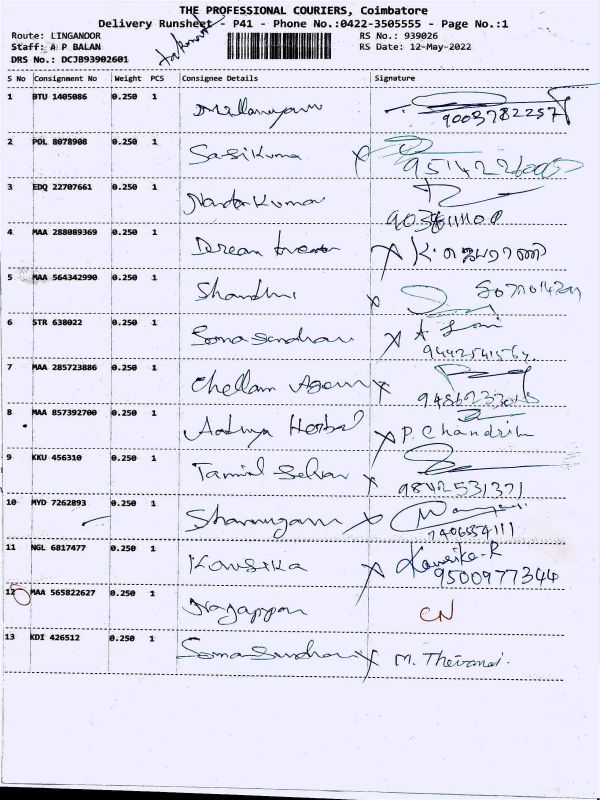 THE PROFESSIONAL COURIERS, Coimbatore
Delivery Runsheet - P41 - Phone No.:0422-3505555 - Page No.:1
Route: LINGANOOR RS No.: 939026
Staff: A P BALAN RS Date: 12-May-2022
DRS No.: DCJB93902601
S No Consignment No Weight PCS Consignee Details Signature
1 BTU 1405086 0.250 1
9003782257
2 POL 8078908 0.250 1 Sasikuma X
3 EDQ 22707661 0.250 1 Nandakumar
4 MAA 288089369 0.250 1 X
5 MAA 564342990 0.250 1 Shandhi X
6 STR 638022 0.250 1 Soma Sundram X
7 MAA 285723886 0.250 1 Chellam X
8 MAA 857392700 0.250 1 Aadhya Herbal X P. Chandrik
9 KKU 456310 0.250 1 Tamil Selvan X
9842531371
10 MYD 7262893 0.250 1 Shanmugam X
11 NGL 6817477 0.250 1 Kausika X Kausika-R
9500977344
12 MAA 565822627 0.250 1 Nagappan CN
13 KDI 426512 0.250 1 Soma Sundram X M. Thevanai.